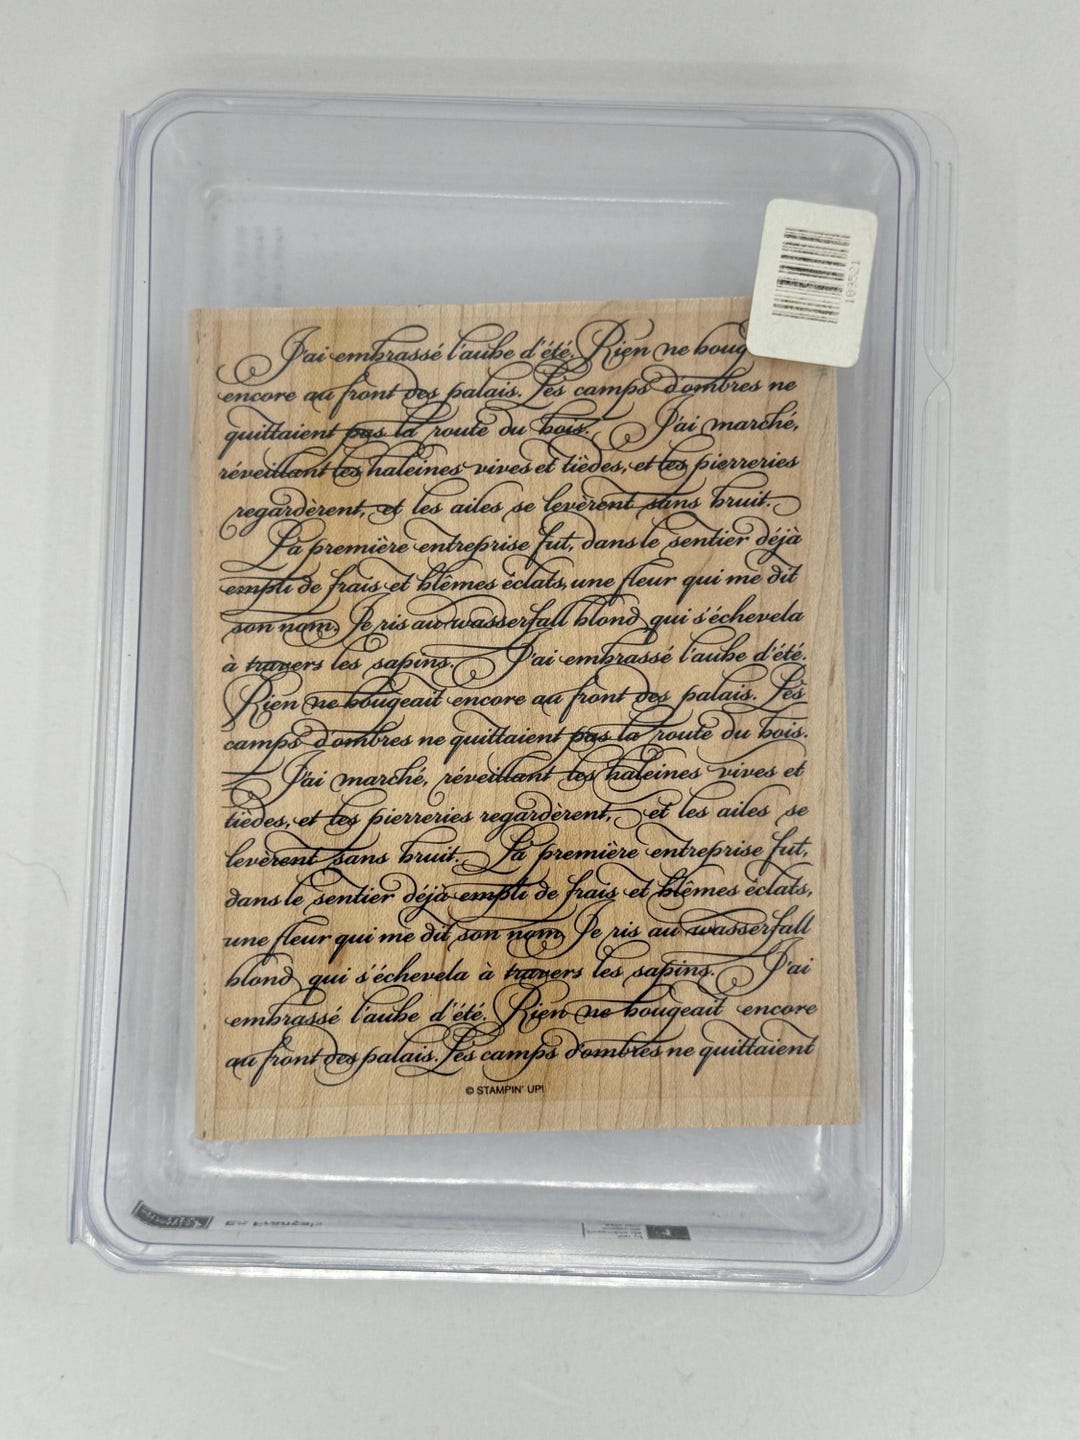 J'ai embrassé l'aube d'été. Rien ne boug
encore au front des palais. Les camps d'ombres ne
quittaient pas la route du bois. J'ai marché,
réveillant les haleines vives et tièdes, et les pierreries
regardèrent, et les ailes se levèrent sans bruit.
La première entreprise fut, dans le sentier déjà
empli de frais et blêmes éclats, une fleur qui me dit
son nom. Je ris au wasserfall blond qui s'échevela
à travers les sapins. J'ai embrassé l'aube d'été.
Rien ne bougeait encore au front des palais. Les
camps d'ombres ne quittaient pas la route du bois.
J'ai marché, réveillant les haleines vives et
tièdes, et les pierreries regardèrent, et les ailes se
levèrent sans bruit. La première entreprise fut,
dans le sentier déjà empli de frais et blêmes éclats,
une fleur qui me dit son nom. Je ris au wasserfall
blond qui s'échevela à travers les sapins. J'ai
embrassé l'aube d'été. Rien ne bougeait encore
au front des palais. Les camps d'ombres ne quittaient
© STAMPIN' UP!
109521
En Français